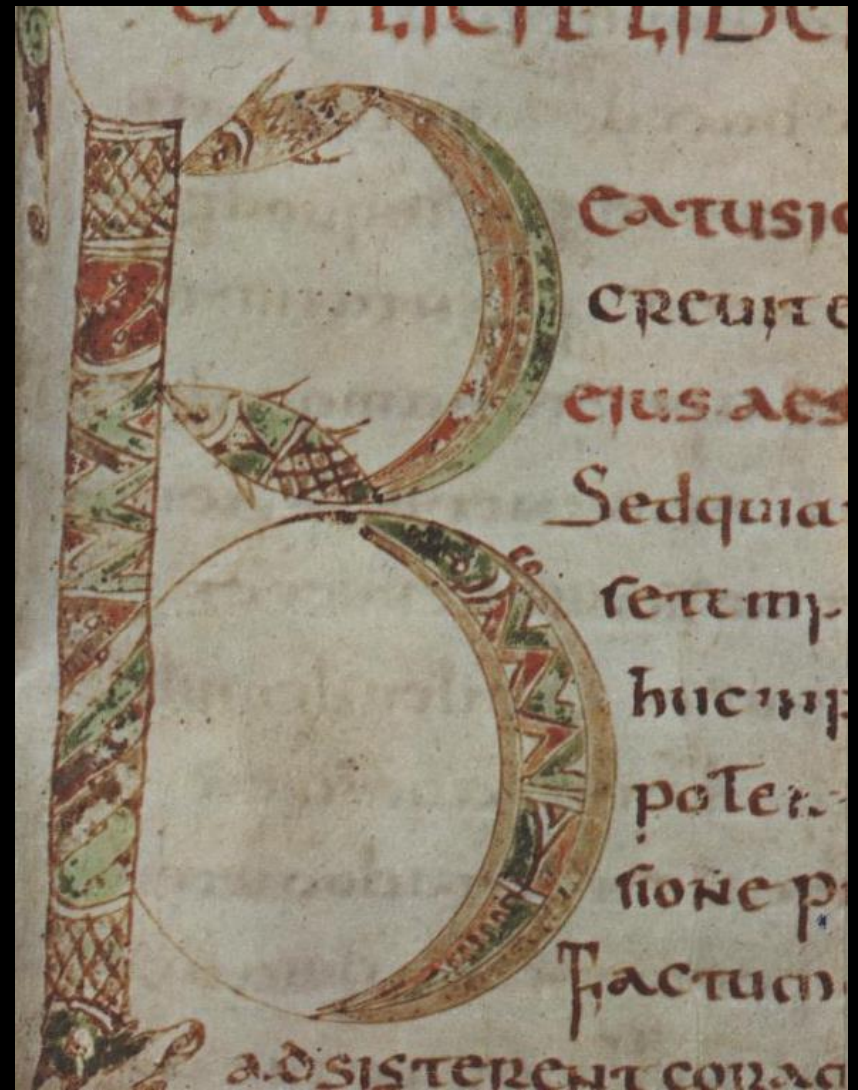 LICIT LIBE
BEATUSIO
CREUIT E
EIUS AES
Sedquia
huc inp
poten
sione p
Factum
ADSISTERENT CORA